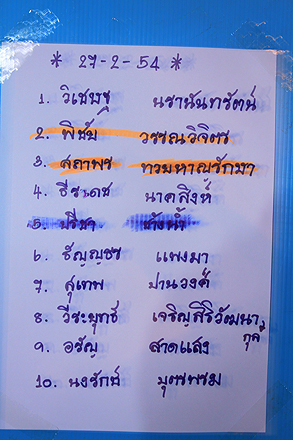 * 27-2-54 *
1. วิเชษฐ นรานันทรัตน์
2. พิชัย วรรณวิจิตร
3. สถาพร ทวมหาญรักษา
4. ธีรเดช นาคสิงห์
5. ปรีชา ช้างน้ำ
6. ธัญญชร แพงมา
7. สุเทพ ปานวงศ์
8. วีระยุทธ์ เจริญสิริวัฒนากุล
9. อรัญ สาดแสง
10. นงรักษ์ บุตรพรม